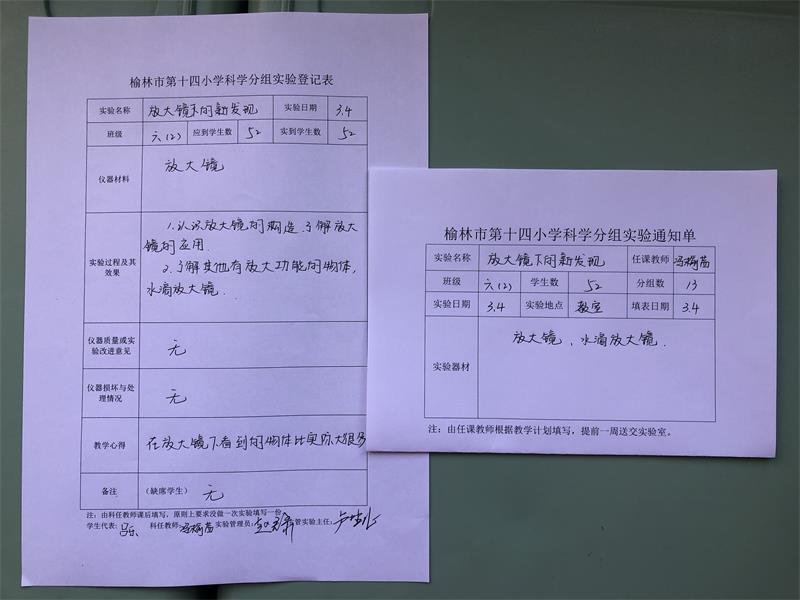 榆林市第十四小学科学分组实验登记表
实验名称 放大镜下的新发现 实验日期 3.4
班级 六(2) 应到学生数 52 实到学生数 52
仪器材料 放大镜
实验过程及其效果 1.认识放大镜的构造,了解放大
镜的应用.
2.了解其他有放大功能的物体,
水滴放大镜.
仪器质量或实验改进意见 无
仪器损坏与处理情况 无
教学心得 在放大镜下看到的物体比实际大很多
备注 (缺席学生) 无
注:由科任教师课后填写,原则上要求没做一次实验填写一份
学生代表: 科任教师: 实验管理员: 管实验主任:
榆林市第十四小学科学分组实验通知单
实验名称 放大镜下的新发现 任课教师
班级 六(2) 学生数 52 分组数 13
实验日期 3.4 实验地点 教室 填表日期 3.4
实验器材 放大镜、水滴放大镜.
注:由任课教师根据教学计划填写,提前一周送交实验室。